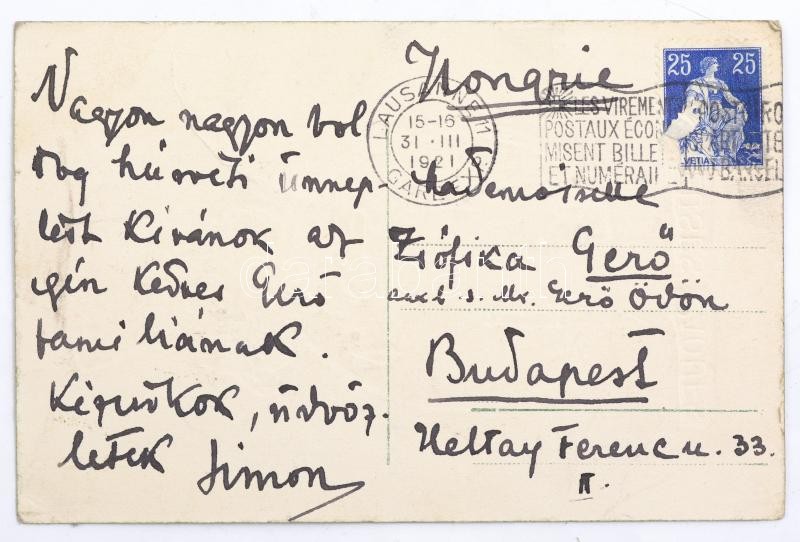 Nagyon nagyon bol
dog húsvéti ünnep-
lést kívánok az
igen kedves Gerő
familiának.
Kézcsókok, üdvöz-
letek Simon
Hongrie
LAUSANNE 11
15-16
31 · III
1921
GARE
25 25
LES VIREMEN
POSTAUX ÉCON
MISENT BILLE
ET NUMÉRAIR
Mademoiselle
Zsófika Gerő
s. Mr. Gerő Ödön
Budapest
Heltay Ferenc u. 33.
II.